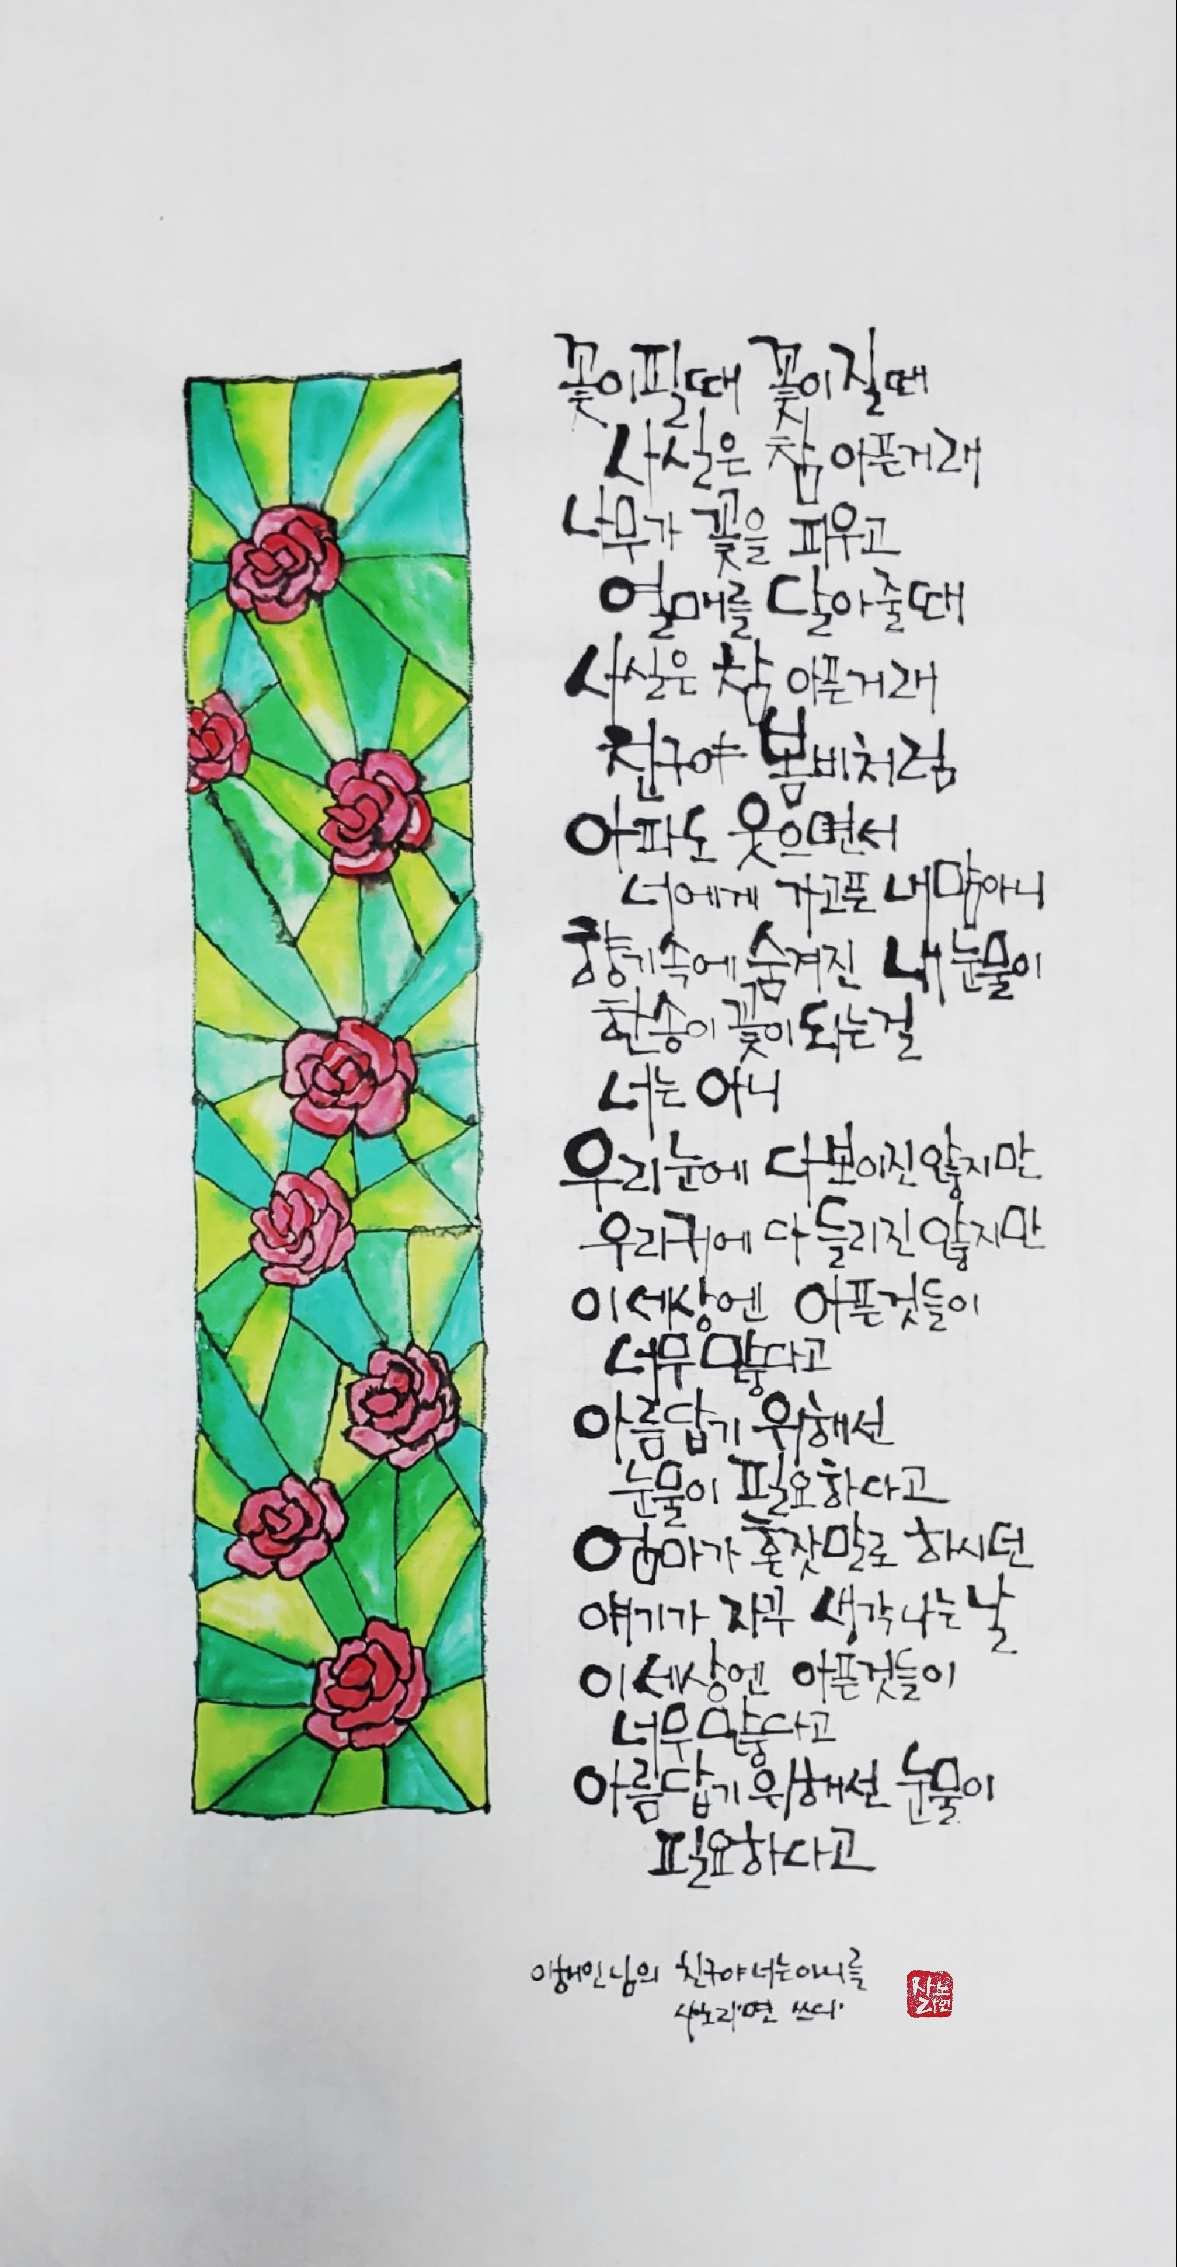 꽃이 필때 꽃이 질때
사실은 참 아픈거래
나무가 꽃을 피우고
열매를 달아줄때
사실은 참 아픈거래
친구야 봄비처럼
아파도 웃으면서
너에게 가고픈 내맘아니
향기속에 숨겨진 내 눈물이
한송이 꽃이 되는걸
너는 아니
우리눈에 다 보이진 않지만
우리귀에 다 들리진 않지만
이 세상엔 아픈것들이
너무 많다고
아름답기 위해선
눈물이 필요하다고
엄마가 혼잣말로 하시던
얘기가 자꾸 생각나는 날
이 세상엔 아픈것들이
너무 많다고
아름답기 위해선 눈물이
필요하다고
이해인님의 친구야 너는 아니를
사노라면 쓰다